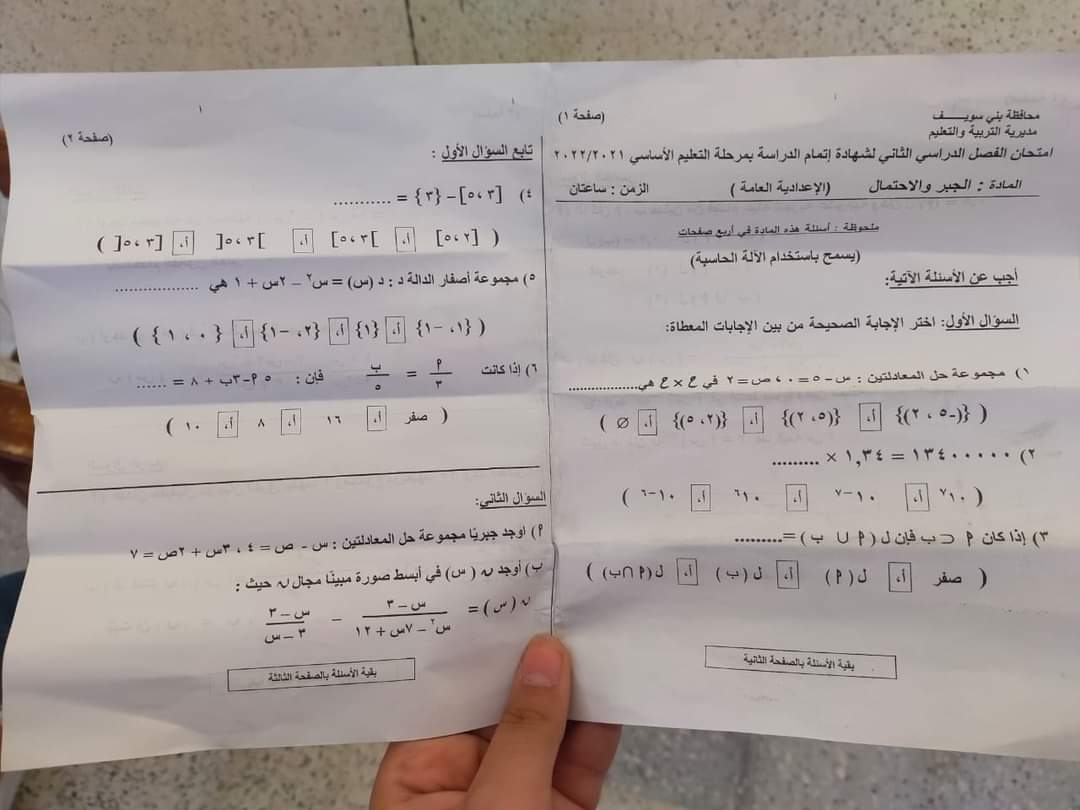 (صفحة ١)
محافظة بني سويــــف
مديرية التربية والتعليم
امتحان الفصل الدراسي الثاني لشهادة إتمام الدراسة بمرحلة التعليم الأساسي ٢٠٢٢/٢٠٢١
المادة : الجبر والاحتمال (الإعدادية العامة ) الزمن : ساعتان
ملحوظة : أسئلة هذه المادة في أربع صفحات
(يسمح باستخدام الآلة الحاسبة)
أجب عن الأسئلة الآتية:
السؤال الأول: اختر الإجابة الصحيحة من بين الإجابات المعطاة:
١) مجموعة حل المعادلتين : س - ٥ = ٠ ، ص = ٢ في ح × ح هي.................
( {(-٥ ، ٢)} أ، {(٥، ٢)} أ، {(٢، ٥)} أ، ∅ )
٢) ١٣٤٠٠٠٠٠ = ١,٣٤ × .........
( ١٠^٧ أ، ١٠^-٧ أ، ١٠^٦ أ، ١٠^-٦ )
٣) إذا كان م ⊂ ب فإن ل ( م ∪ ب ) =.........
( صفر أ، ل ( م ) أ، ل ( ب ) أ، ل( م ∩ ب) )
بقية الأسئلة بالصفحة الثانية
١
(صفحة ٢)
تابع السؤال الأول :
٤) [٣ ،٥] – {٣} = ...........
( [٢ ،٥] أ، ]٣ ،٥] أ، ]٣ ،٥[ أ، [٣ ،٥[ )
٥) مجموعة أصفار الدالة د : د (س) = س^٢ – ٢س + ١ هي .................
( {١، -١} أ، {١} أ، {٢، -١} أ، { ٠ ، ١ } )
٦) إذا كانت م/٣ = ب/٥ فإن : ٥ م - ٣ب + ٨ = ......
( صفر أ، ١٦ أ، ٨ أ، ١٠ )
السؤال الثاني:
م) اوجد جبريًا مجموعة حل المعادلتين : س - ص = ٤ ، ٣س + ٢ص = ٧
ب) أوجد ن ( س) في أبسط صورة مبينًا مجال ن حيث :
ن ( س ) = (س – ٣)/(س^٢ – ٧س + ١٢) – (س – ٣)/(٣ – س)
بقية الأسئلة بالصفحة الثالثة